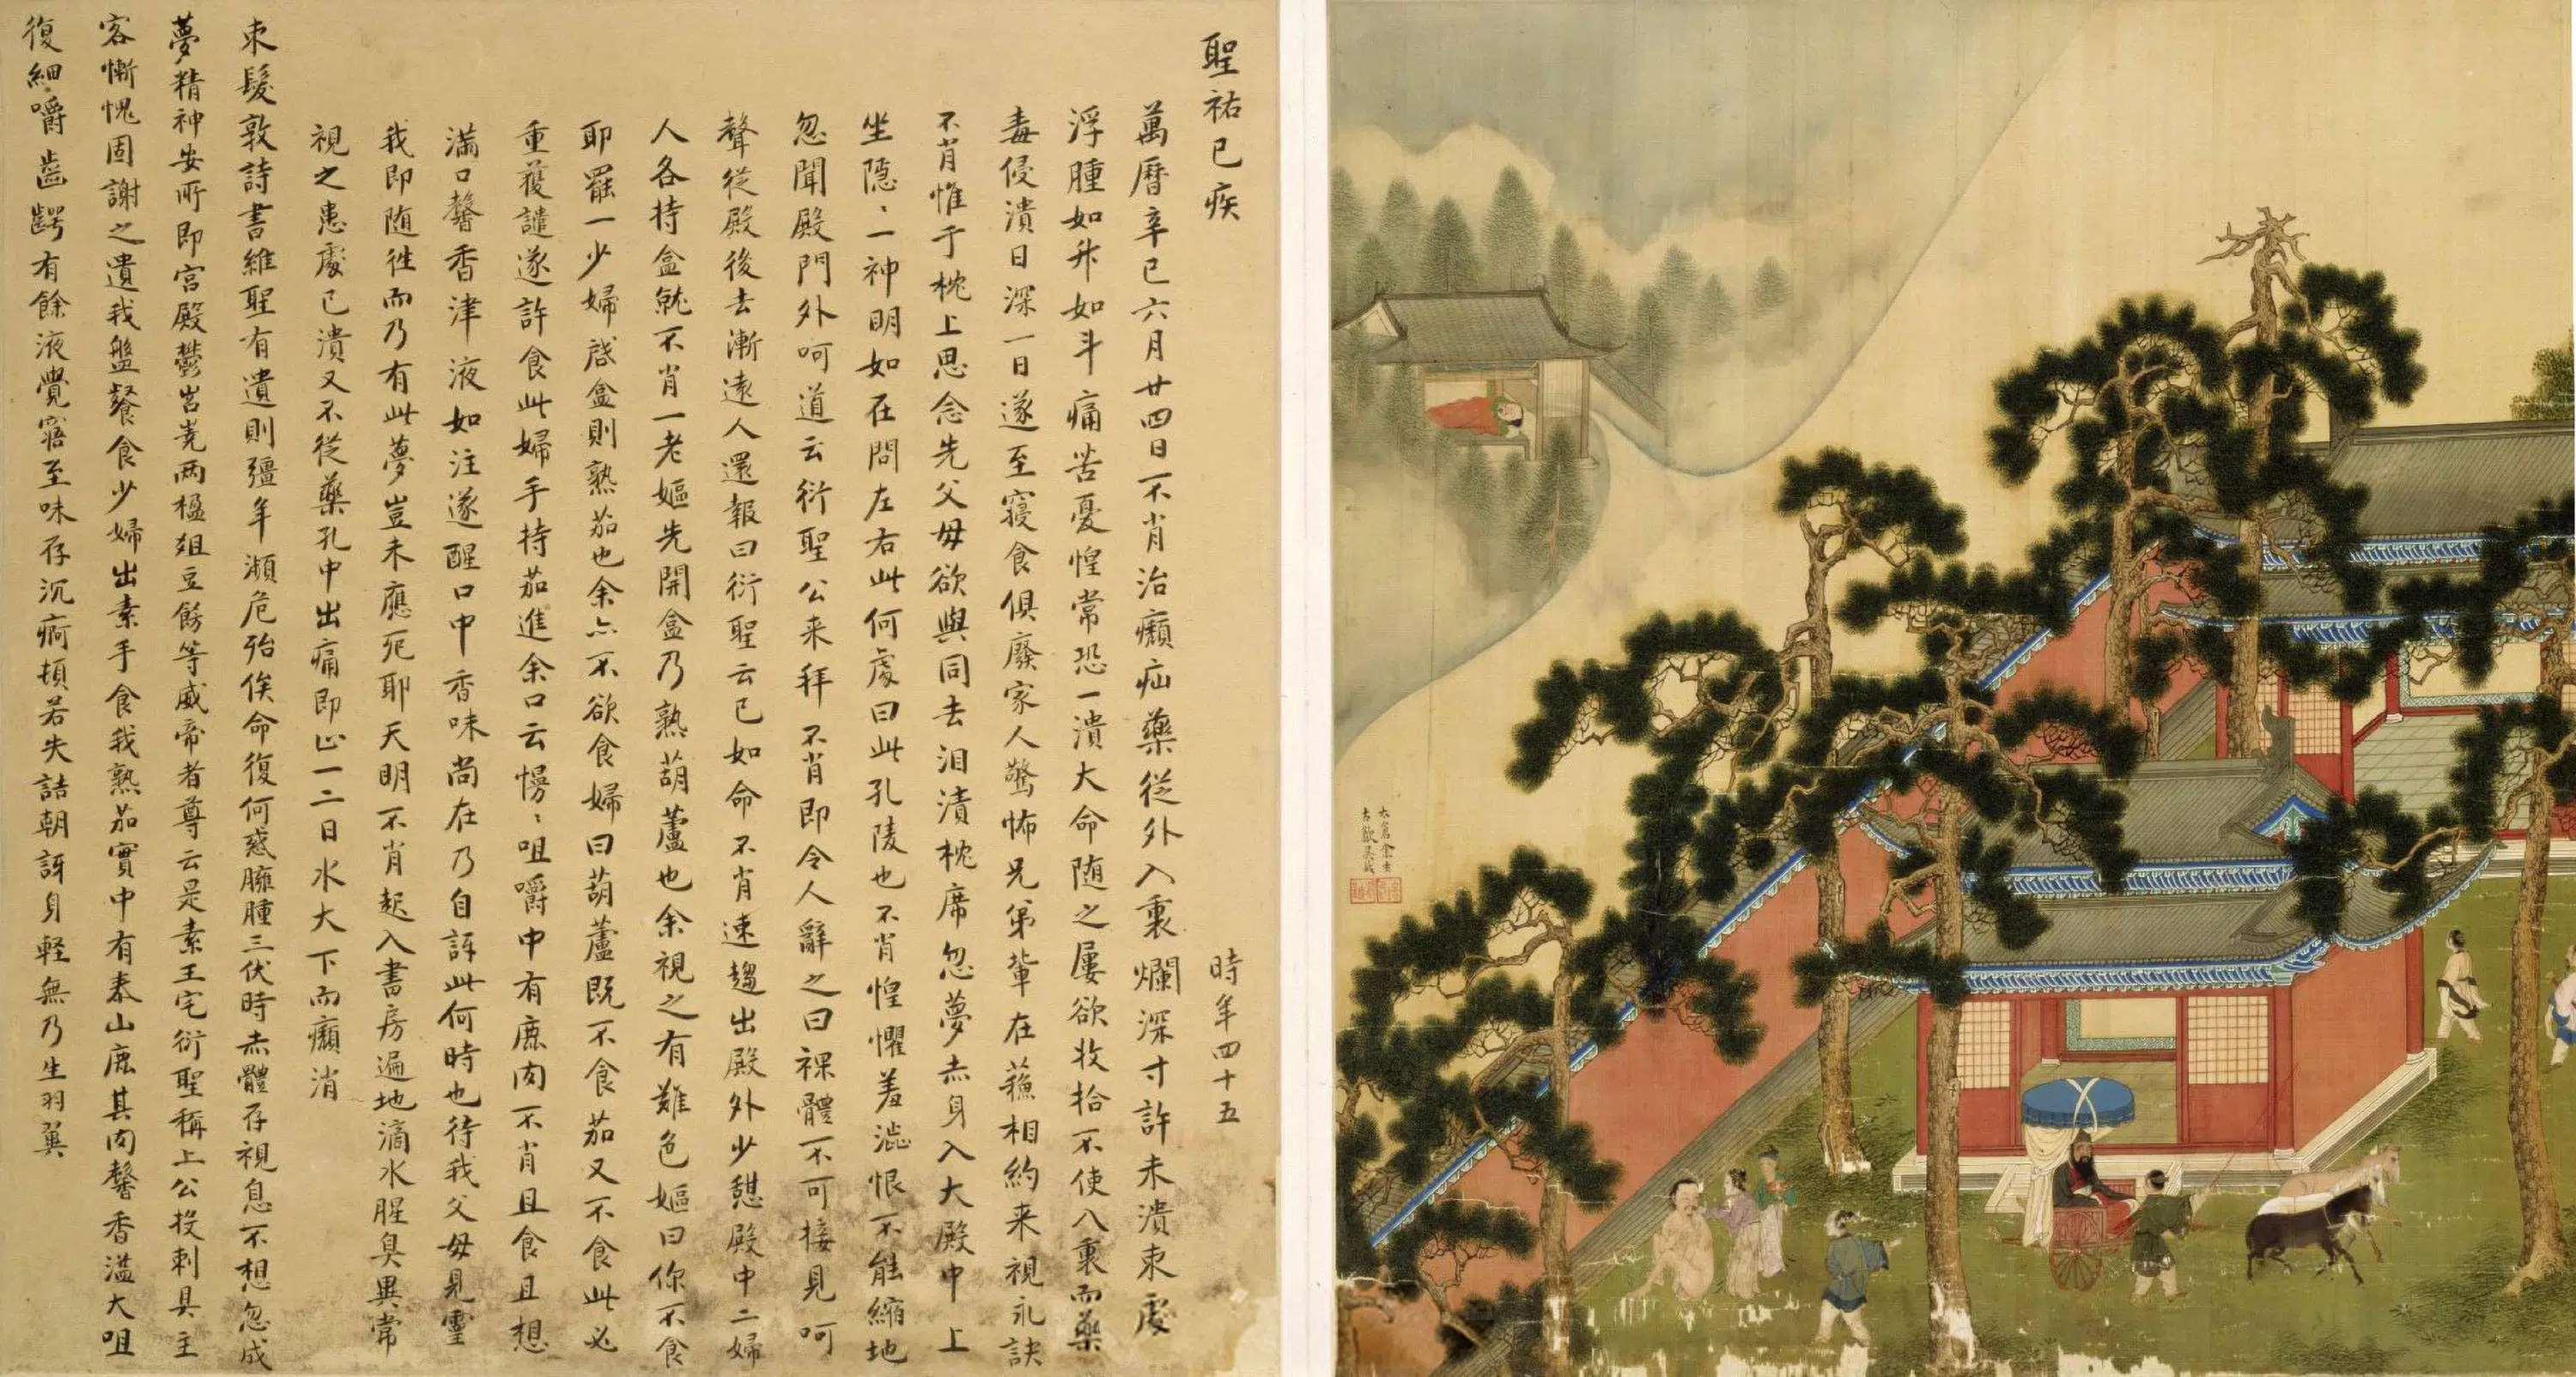 聖祐已疾
時年四十五
萬曆辛巳六月廿四日不肖治癩疝藥從外入裏爛深寸許未潰束處
浮腫如升如斗痛苦憂惶常恐一潰大命随之屢欲收拾不使入裏而藥
毒侵潰日深一日遂至寢食俱廢家人驚怖兄弟輩在蘓相約来視永訣
不肖惟于枕上思念先父母欲與同去泪漬枕席忽夢赤身入大殿中上
坐隱〻一神明如在問左右此何處曰此孔陵也不肖惶懼羞澁恨不能縮地
忽聞殿門外呵道云衍聖公来拜不肖即令人辭之曰裸體不可接見呵
聲從殿後去漸遠人還報曰衍聖云已如命不肖速趨出殿外少憩殿中二婦
人各持盒就不肖一老嫗先開盒乃熟葫蘆也余視之有難色嫗曰你不食
耶罷一少婦啓盒則熟茄也余亦不欲食婦曰葫蘆既不食茄又不食此必
重獲譴遂許食此婦手持茄進余口云慢〻咀嚼中有鹿肉不肖且食且想
滿口馨香津液如注遂醒口中香味尚在乃自訝此何時也待我父母見靈
我即随往而乃有此夢豈未應死耶天明不肖起入書房遍地滴水腥臭異常
視之患處已潰又不從藥孔中出痛即止一二日水大下而癩消
束髮敦詩書維聖有遺則彊年瀕危殆俟命復何惑臃腫三伏時赤體存視息不想忽成
夢精神安所即宮殿鬱岧嶤兩楹俎豆餝等威帝者尊云是素王宅衍聖稱上公投刺具主
客慚愧固謝之遺我盤餐食少婦出素手食我熟茄實中有泰山鹿其肉馨香溢大咀
復細嚼齒齶有餘液覺寤至味存沉痾頓若失詰朝訝身軽無乃生羽翼